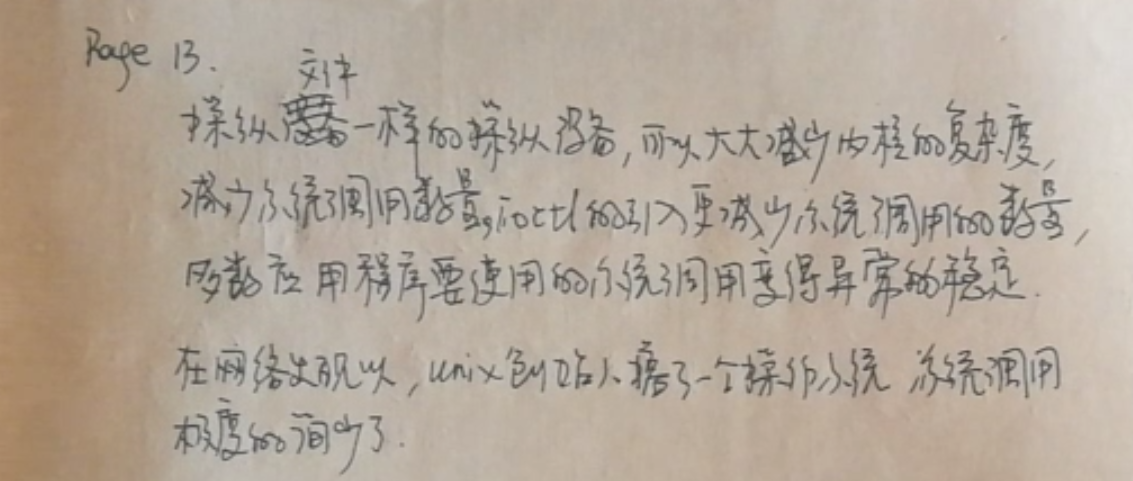 Page 13.
文件
操纵一样的操纵设备,可以大大减少内核的复杂度,
减少系统调用数量,ioctl的引入更减少系统调用的数量,
多数应用程序要使用的系统调用变得异常的稳定.
在网络出现以,unix创始人搞了一个操作系统 系统调用
极度的简少了.